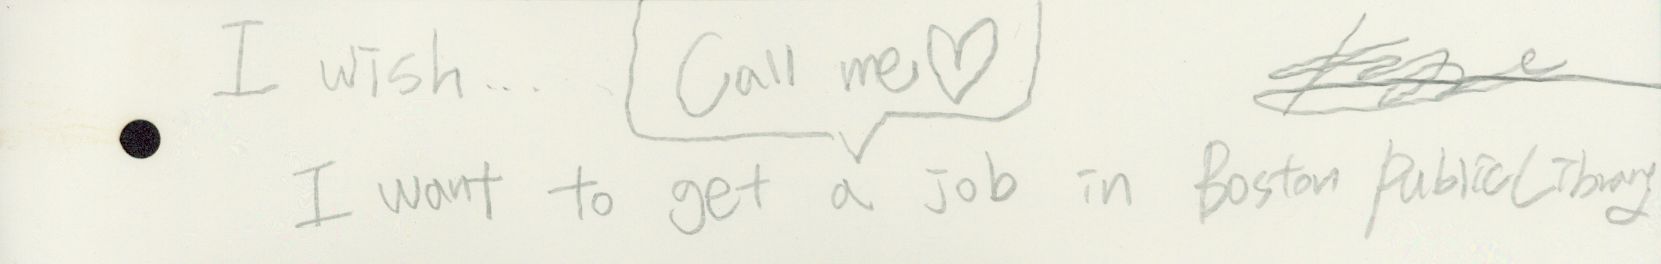 I wish...
Call me♡
I want to get a job in Boston Public Library